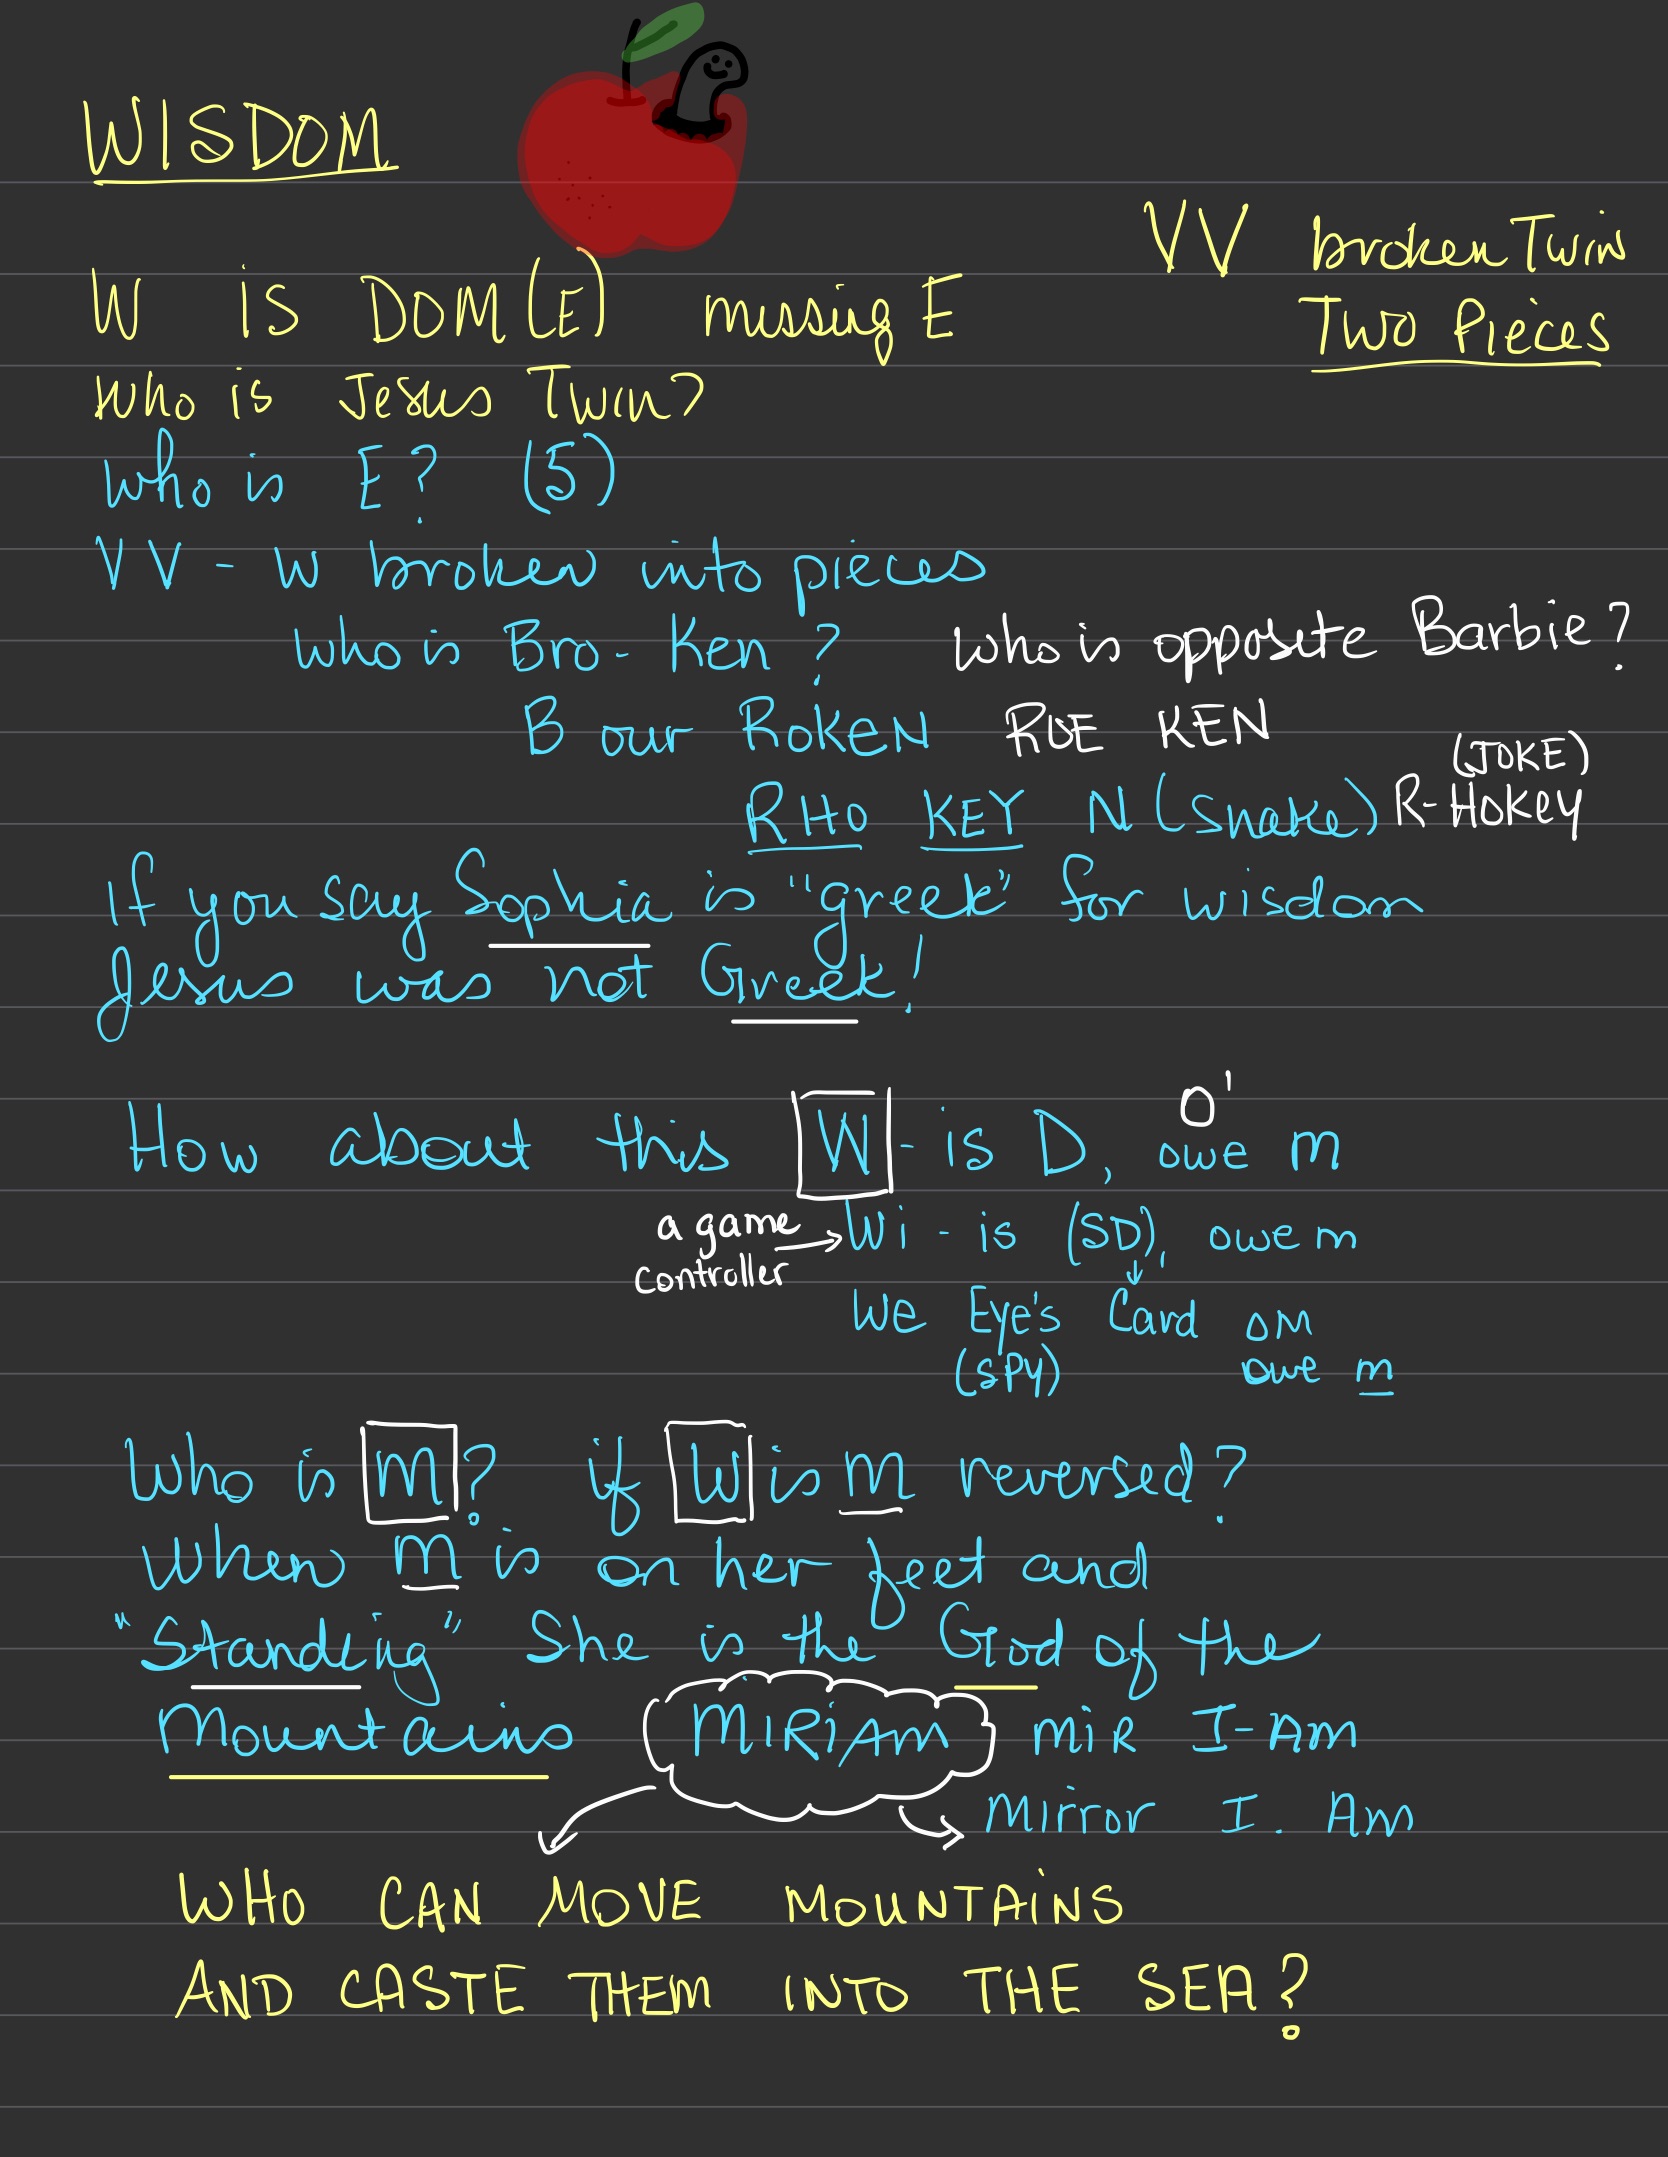 WISDOM
VV broken Twin
W IS DOM(E) missing E
Two Pieces
Who is Jesus Twin?
Who is E? (5)
VV - W broken into pieces
Who is Bro-Ken? Who is opposite Barbie?
B our RoKEN RUE KEN
(JOKE)
RHO KEY N (snake) R-HOKEY
If you say Sophia is "greek" for wisdom
Jesus was not Greek!
O'
How about this W - is D, owe m
a game
controller
Wi - is (SD), owe m
We Eye's Card OM
(SPY) owe m
Who is M? if W is M reversed?
When M is on her feet and
"Standing" She is the God of the
Mountains MIRIAM MIR I-AM
Mirror I. Am
WHO CAN MOVE MOUNTAINS
AND CASTE THEM INTO THE SEA?